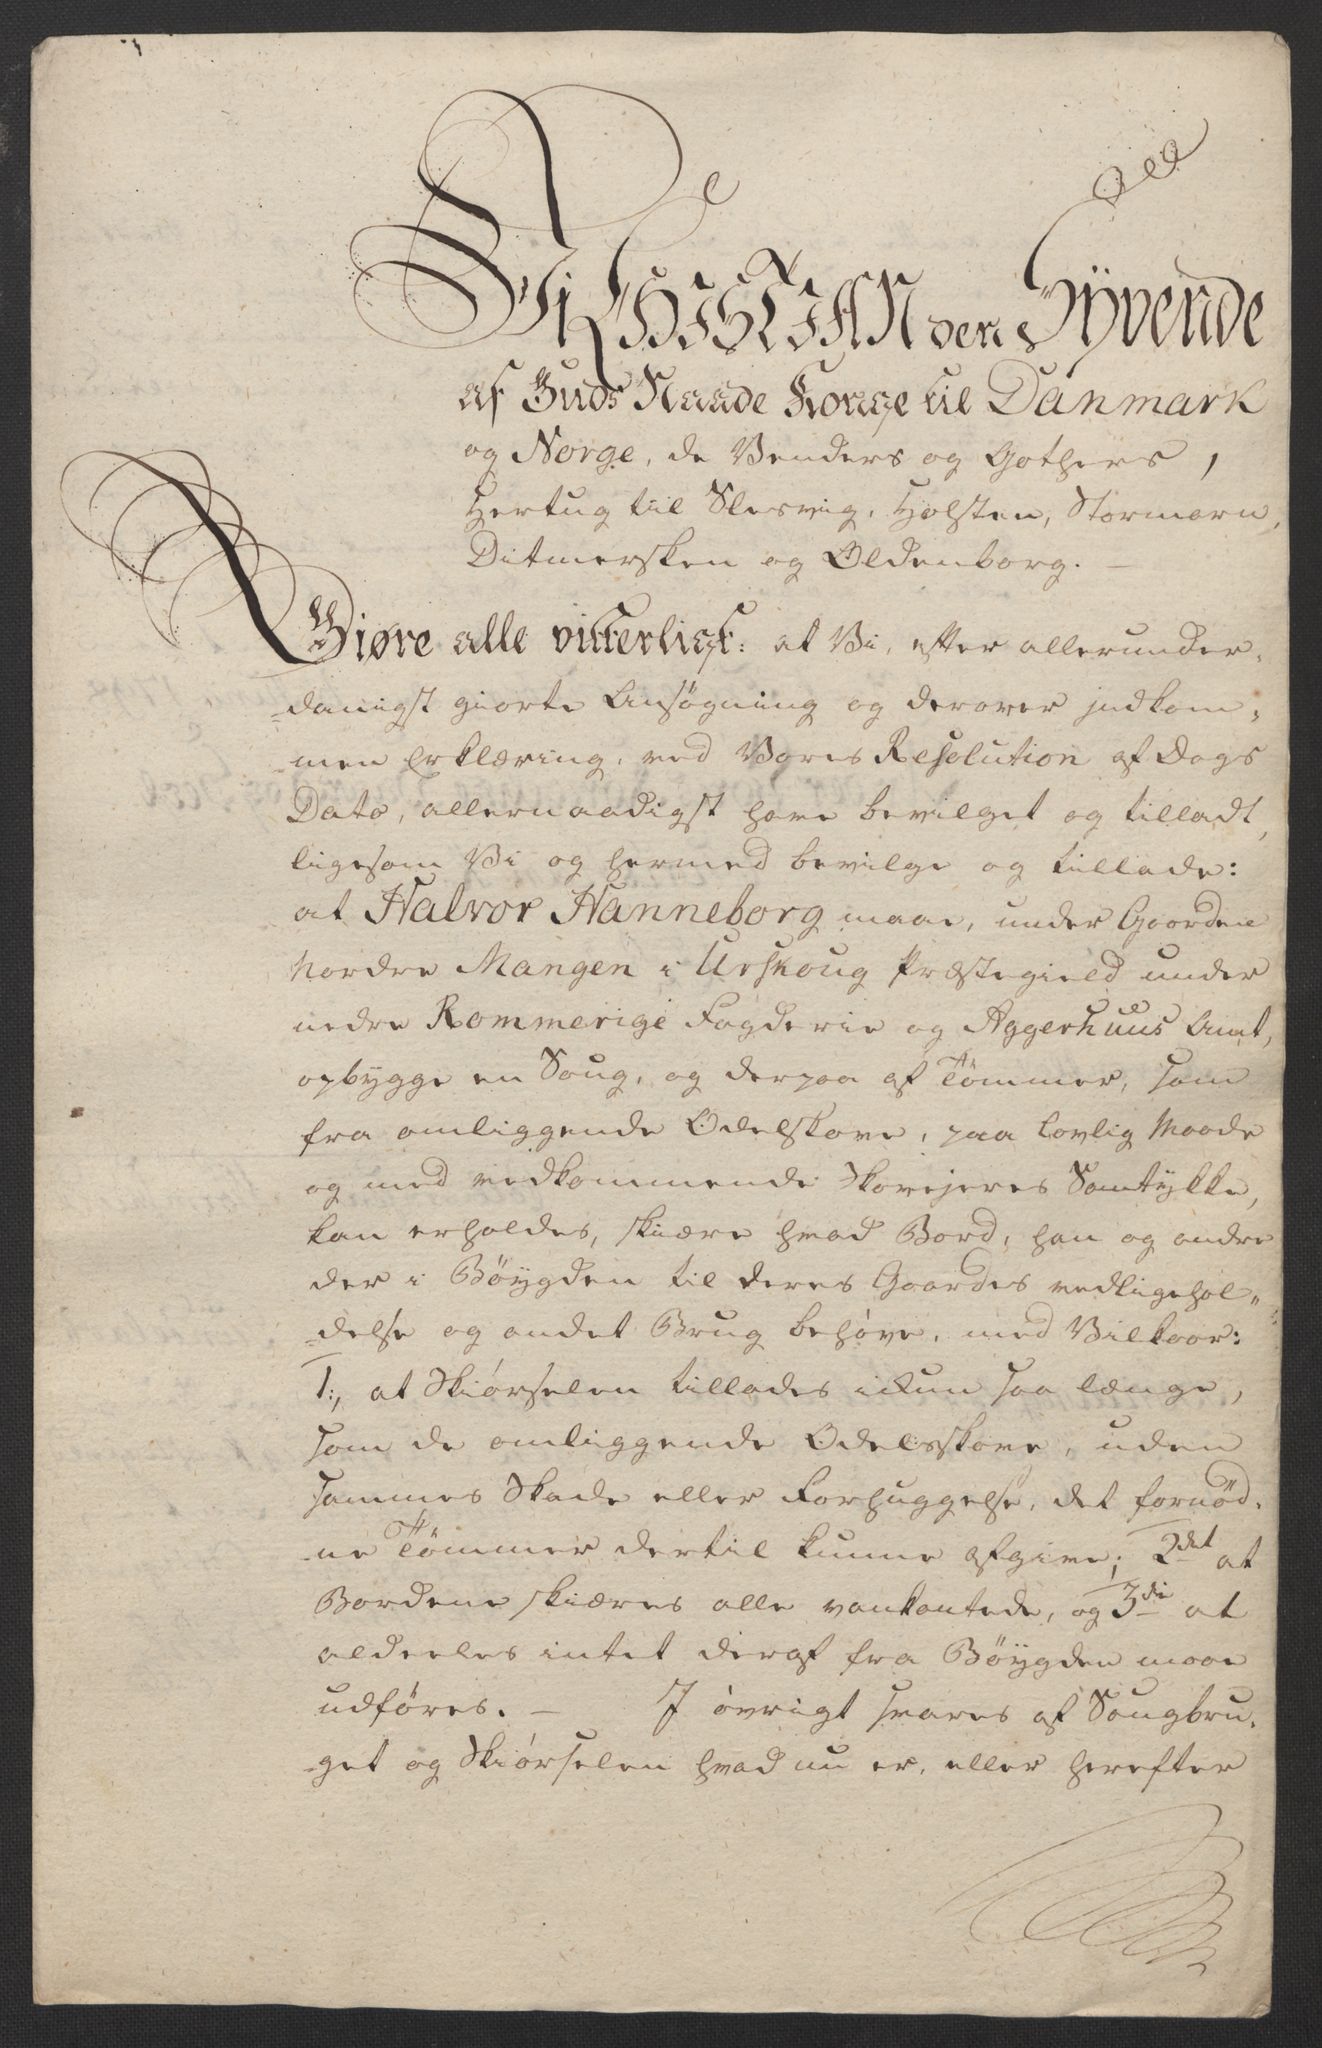 CHRISTIAN den Syvende
af Guds Naade Konge til Danmark
og Norge, de Venders og Gothers,
Hertug til Slesvig, Holsten, Stormarn,
Ditmersken og Oldenborg. –
Giøre alle vitterligt: at Vi, efter allerunder-
-danigst giorte Ansøgning og derover indkom-
-men Erklæring, ved Vores Resolution af Dags
Dato, allernaadigst have bevilget og tilladt,
ligesom Vi og hermed bevilge og tillade:
at Halvor Hanneborg maae, under Gaarden
Nordre Mangen i Urskoug Præstegield under
nedre Rommerige Fogderie og Aggerhuus Amt,
opbygge en Saug, og derpaa af Tömmer, som
fra omliggende Odelskove, paa lovlig Maade
og med vedkommende Skovejeres Samtÿkke,
kan erholdes, skiære hvad Bord, han og andre
der i Böÿgden til deres Gaardes vedligehol-
-delse og andet Brug behøve, med Vilkaar:
1:, at Skiørselen tillades ickun saa længe,
som de omliggende Odelsskove, uden
sammes Skade eller Forhuggelse, det fornöd-
-ne Tömmer dertil kunne afgive; 2det at
Bordene skiæres alle vankantede, og 3die at
aldeeles intet deraf fra Böÿgden maae
udföres. – I øvrigt svares af Saugbru-
-get og Skiørselen hvad nu er, eller herefter